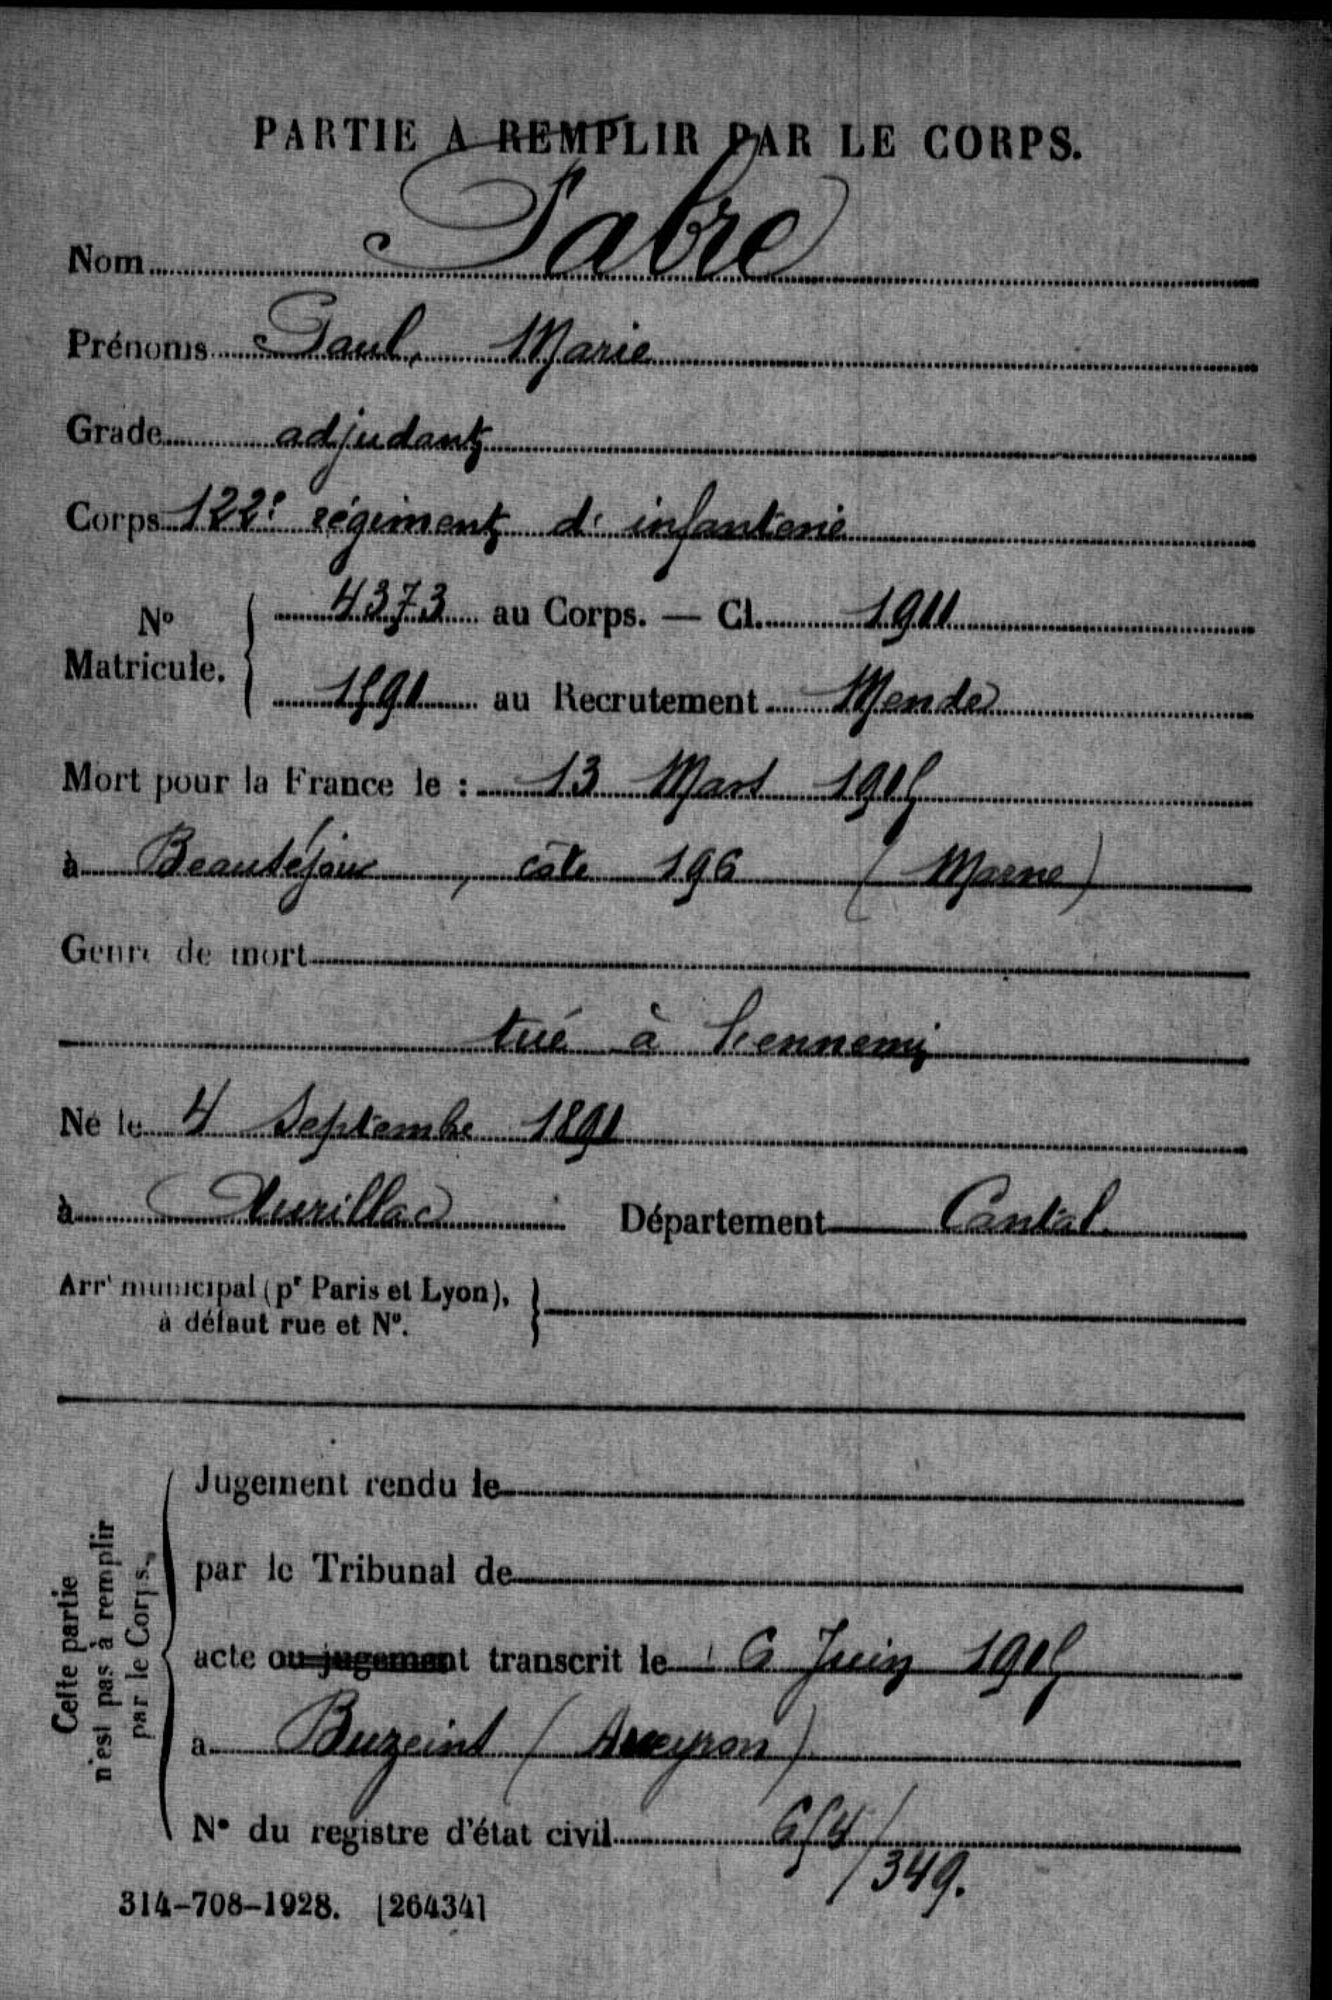 PARTIE A REMPLIR PAR LE CORPS.
Nom Fabre
Prénoms Paul, Marie
Grade adjudant
Corps 122e régiment d'infanterie
No Matricule. 4373 au Corps. — Cl. 1911
1591 au Recrutement Mende
Mort pour la France le : 13 Mars 1915
à Beauséjour, côte 196 (Marne)
Genre de mort
tué à l'ennemi
Né le 4 Septembre 1891
à Aurillac Département Cantal
Arrt municipal (pr Paris et Lyon),
à défaut rue et No.
Cette partie
n'est pas à remplir
par le Corps.
Jugement rendu le
par le Tribunal de
acte ou jugement transcrit le 6 Juin 1915
a Buzeins (Aveyron)
No du registre d'état civil 654/349.
314-708-1928. [26434]